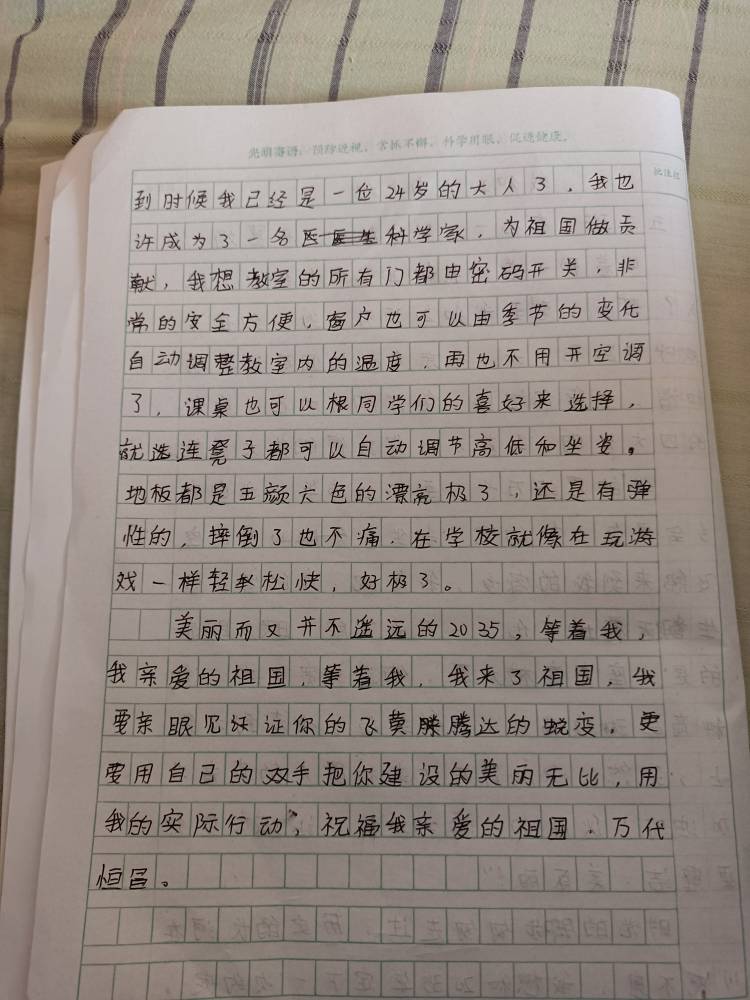 光明寄语：预防近视，常抓不懈，科学用眼，促进健康。
批注栏
到时候我已经是一位24岁的大人了，我也
许成为了一名科学家，为祖国做贡
献，我想教室的所有门都由密码开关，非
常的安全方便，窗户也可以由季节的变化
自动调整教室内的温度，再也不用开空调
了，课桌也可以根同学们的喜好来选择，
就连凳子都可以自动调节高低和坐姿。
地板都是五颜六色的漂亮极了，还是有弹
性的，摔倒了也不痛，在学校就候在玩游
戏一样轻松快，好极了。
美丽而又并不遥远的2035，等着我，
我亲爱的祖国，等着我，我来了祖国，我
要亲眼见证你的飞黄腾达的蜕变，更
要用自己的双手把你建设的美丽无比，用
我的实际行动，祝福我亲爱的祖国，万代
恒昌。